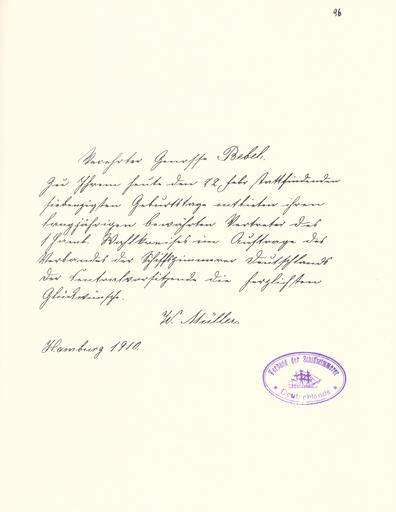 96
Verehrter Genosse Bebel.
Zu Ihrem heute den 22. Febr stattfindenden
siebenzigsten Geburtstage entbieten ihren
langjährigen bewährten Vertreter des
1 Hamb. Wahlkreises im Auftrage des
Verbandes der Schiffszimmerer Deutschlands
der Centralvorsitzende die herzlichsten
Glückwünsche.
W. Müller.
Hamburg 1910.
Verband der Schiffszimmerer
* Deutschlands *